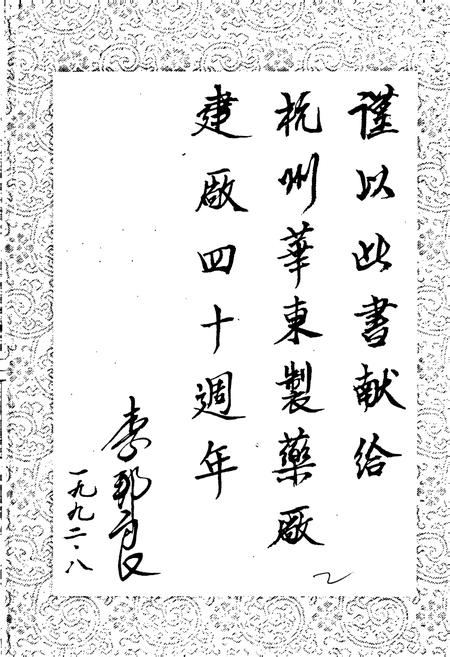 谨以此書献给
杭州華東製藥厰
建厰四十週年
李邦良
一九九二·八